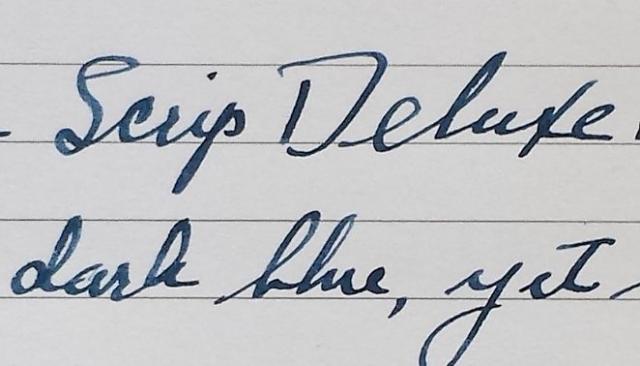 Scrip Deluxe
dark blue, yet